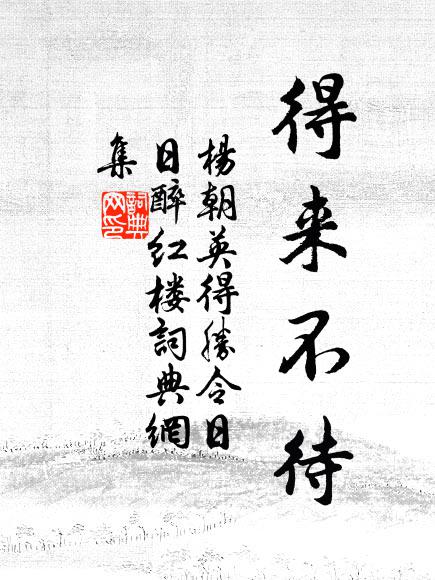 得来不待
楊朝英得勝令日
日醉红楼詞典網
集
詞典
网印